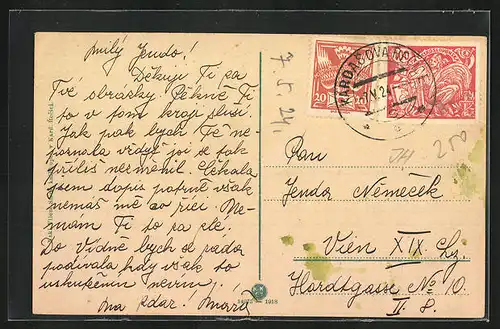 Milý Jendo!
Děkuji Ti za
Tvé obrázky. Pěkně Ti
to v tom kraji sluší.
Jak pak bych Tě ne-
poznala vždyť jsi se tak
příliš nezměnil. Čekala
jsem dopis patrně však
nemáš mě co říci. Ne-
mám Ti to za zlé.
Do Vídně bych se ráda
podívala kdy však to
uskutečním nevím!
Na zdar! Mařa
7. 5. 24
KARDAŠOVA
7 V 24
20 20
JH
250
Pan
Jenda Němeček
Vien XIX. Lz.
Hardtgasse No 10.
II. 8.
1918